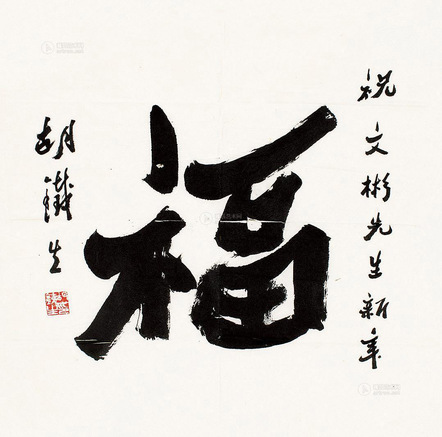 祝文彬先生新年
福
胡鐵生